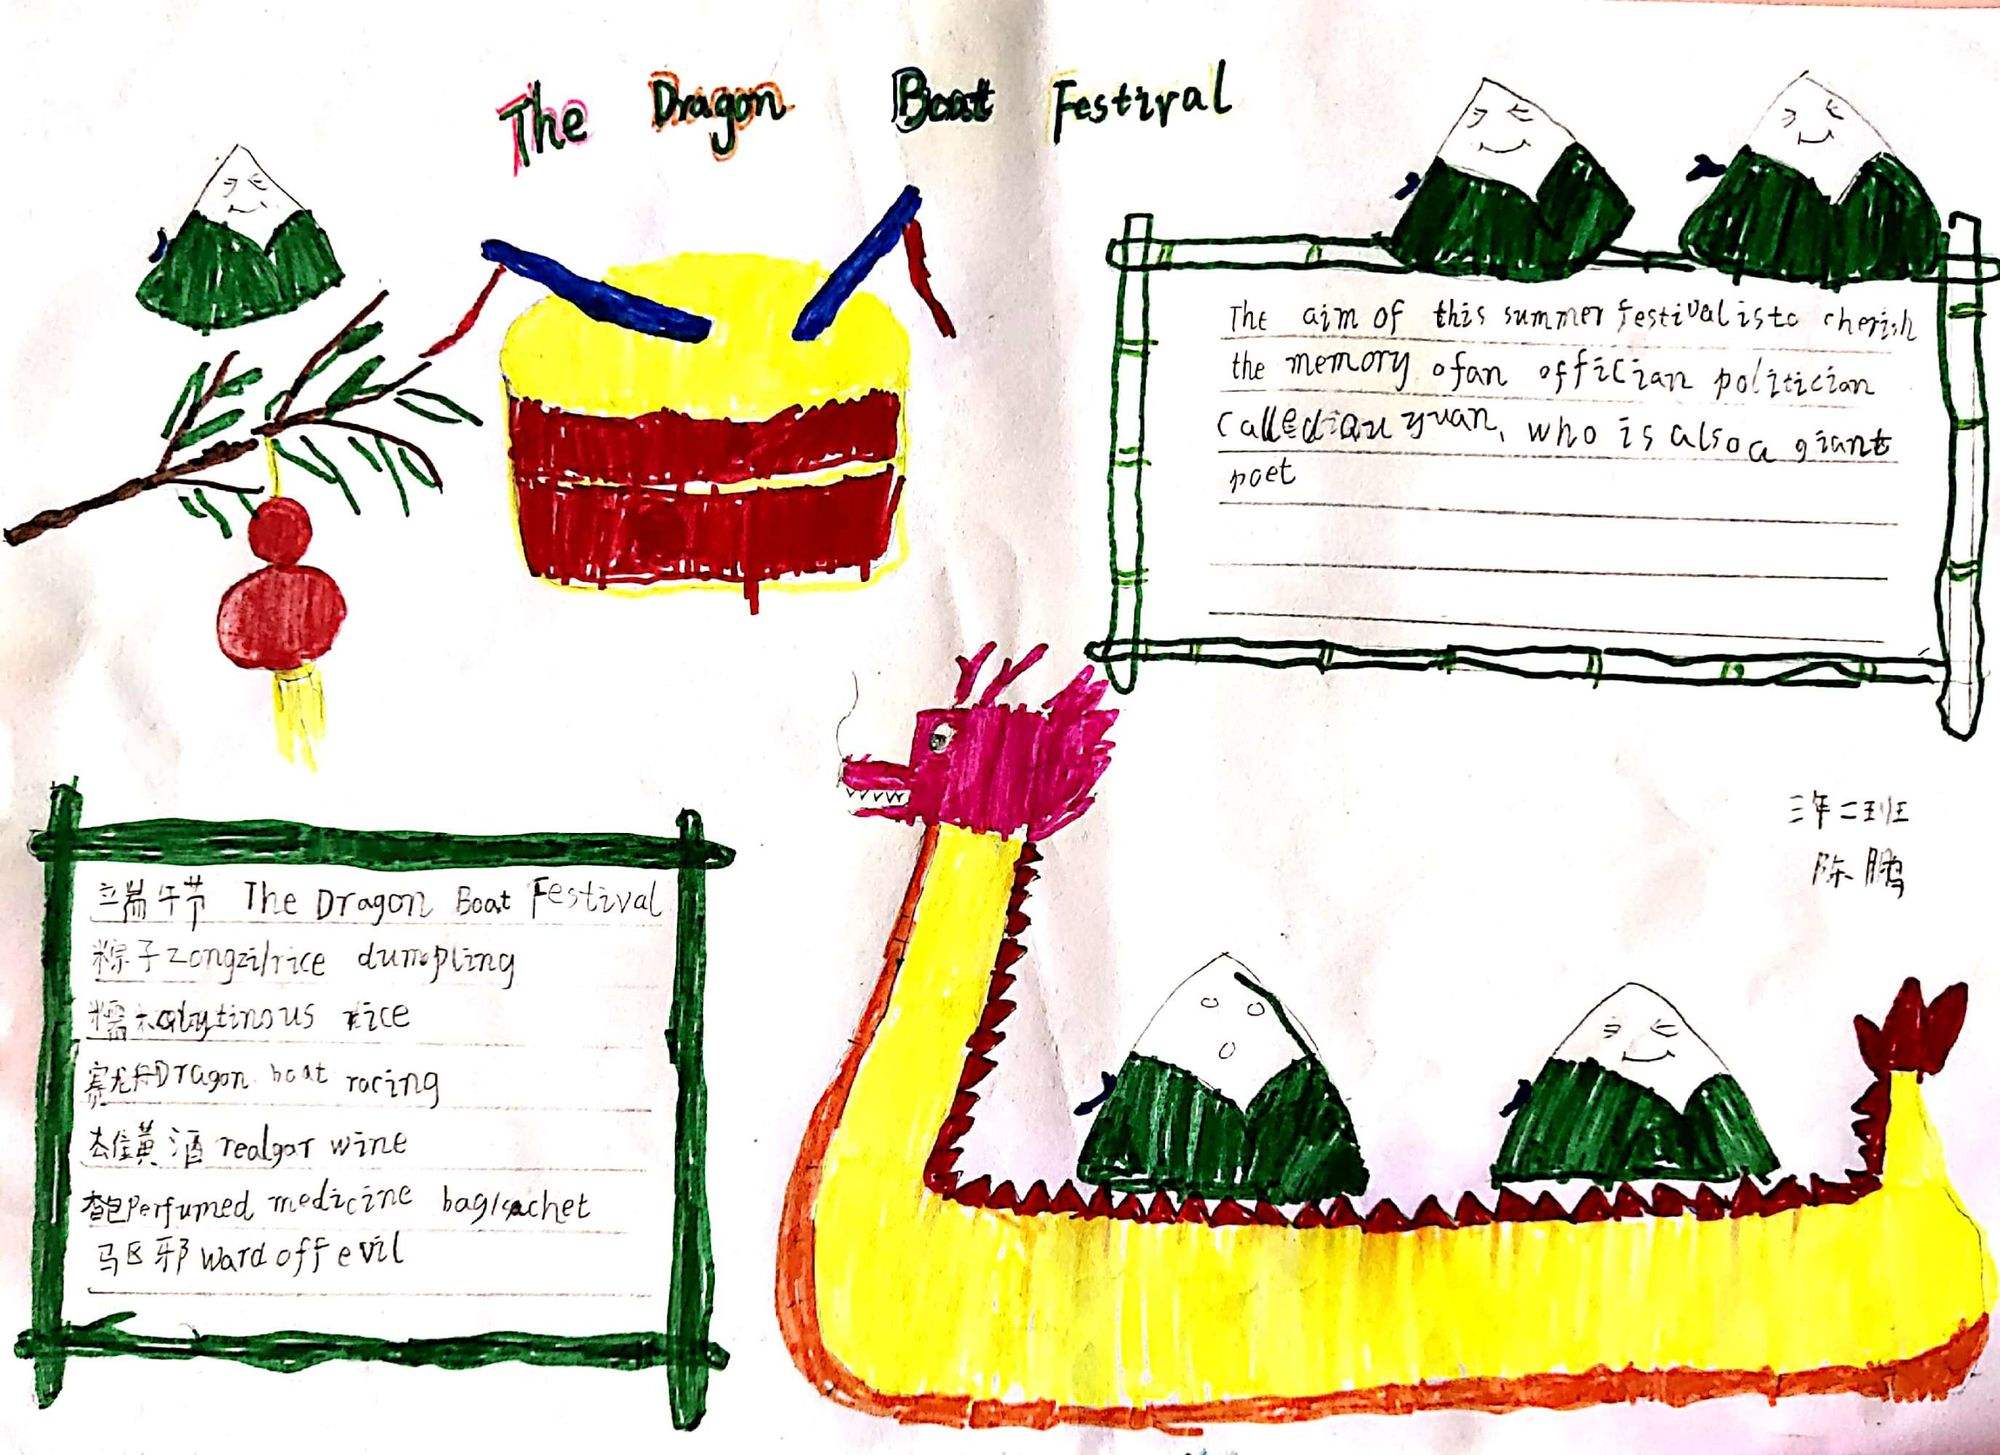 The Dragon Boat Festival
The aim of this summer festival is to cherish
the memory of an offician politician
called Qian yuan, who is also a giant
poet
三年二班
陈鹏
端午节 The Dragon Boat Festival
粽子 zongzi/rice dumpling
糯米 rice
赛龙舟 Dragon boat racing
雄黄酒 realgar wine
香包 Perfumed medicine bag/sachet
驱邪 ward off evil